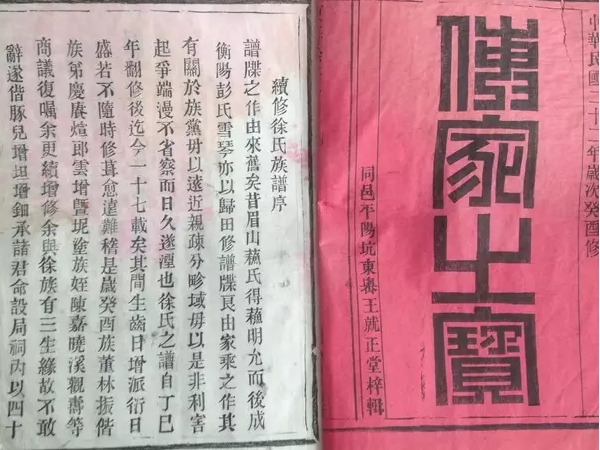 中華民國二十二年歲次癸酉修
傳家之寶
同邑平陽坑東嶴王就正堂梓輯
續修徐氏族譜序
譜牒之作由來舊矣昔眉山蘇氏得蘇明允而後成
衡陽彭氏雪琴亦以歸田修譜牒良由家乘之作其
有關於族黨毋以遠近親疎分畛域毋以是非利害
起爭端漫不省察而日久遂湮也徐氏之譜自丁巳
年翻修後迄今一十七載矣其間生齒日增派衍日
盛若不隨時修葺愈遠難稽是歲癸酉族董林振偕
族弟慶賡煊郎雲增暨坭塗族姪陳嘉曉溪觀壽等
商議復囑余更續增修余與徐族有三生緣故不敢
辭遂偕豚兒增坦增鈿承諸君命設局祠內以四十